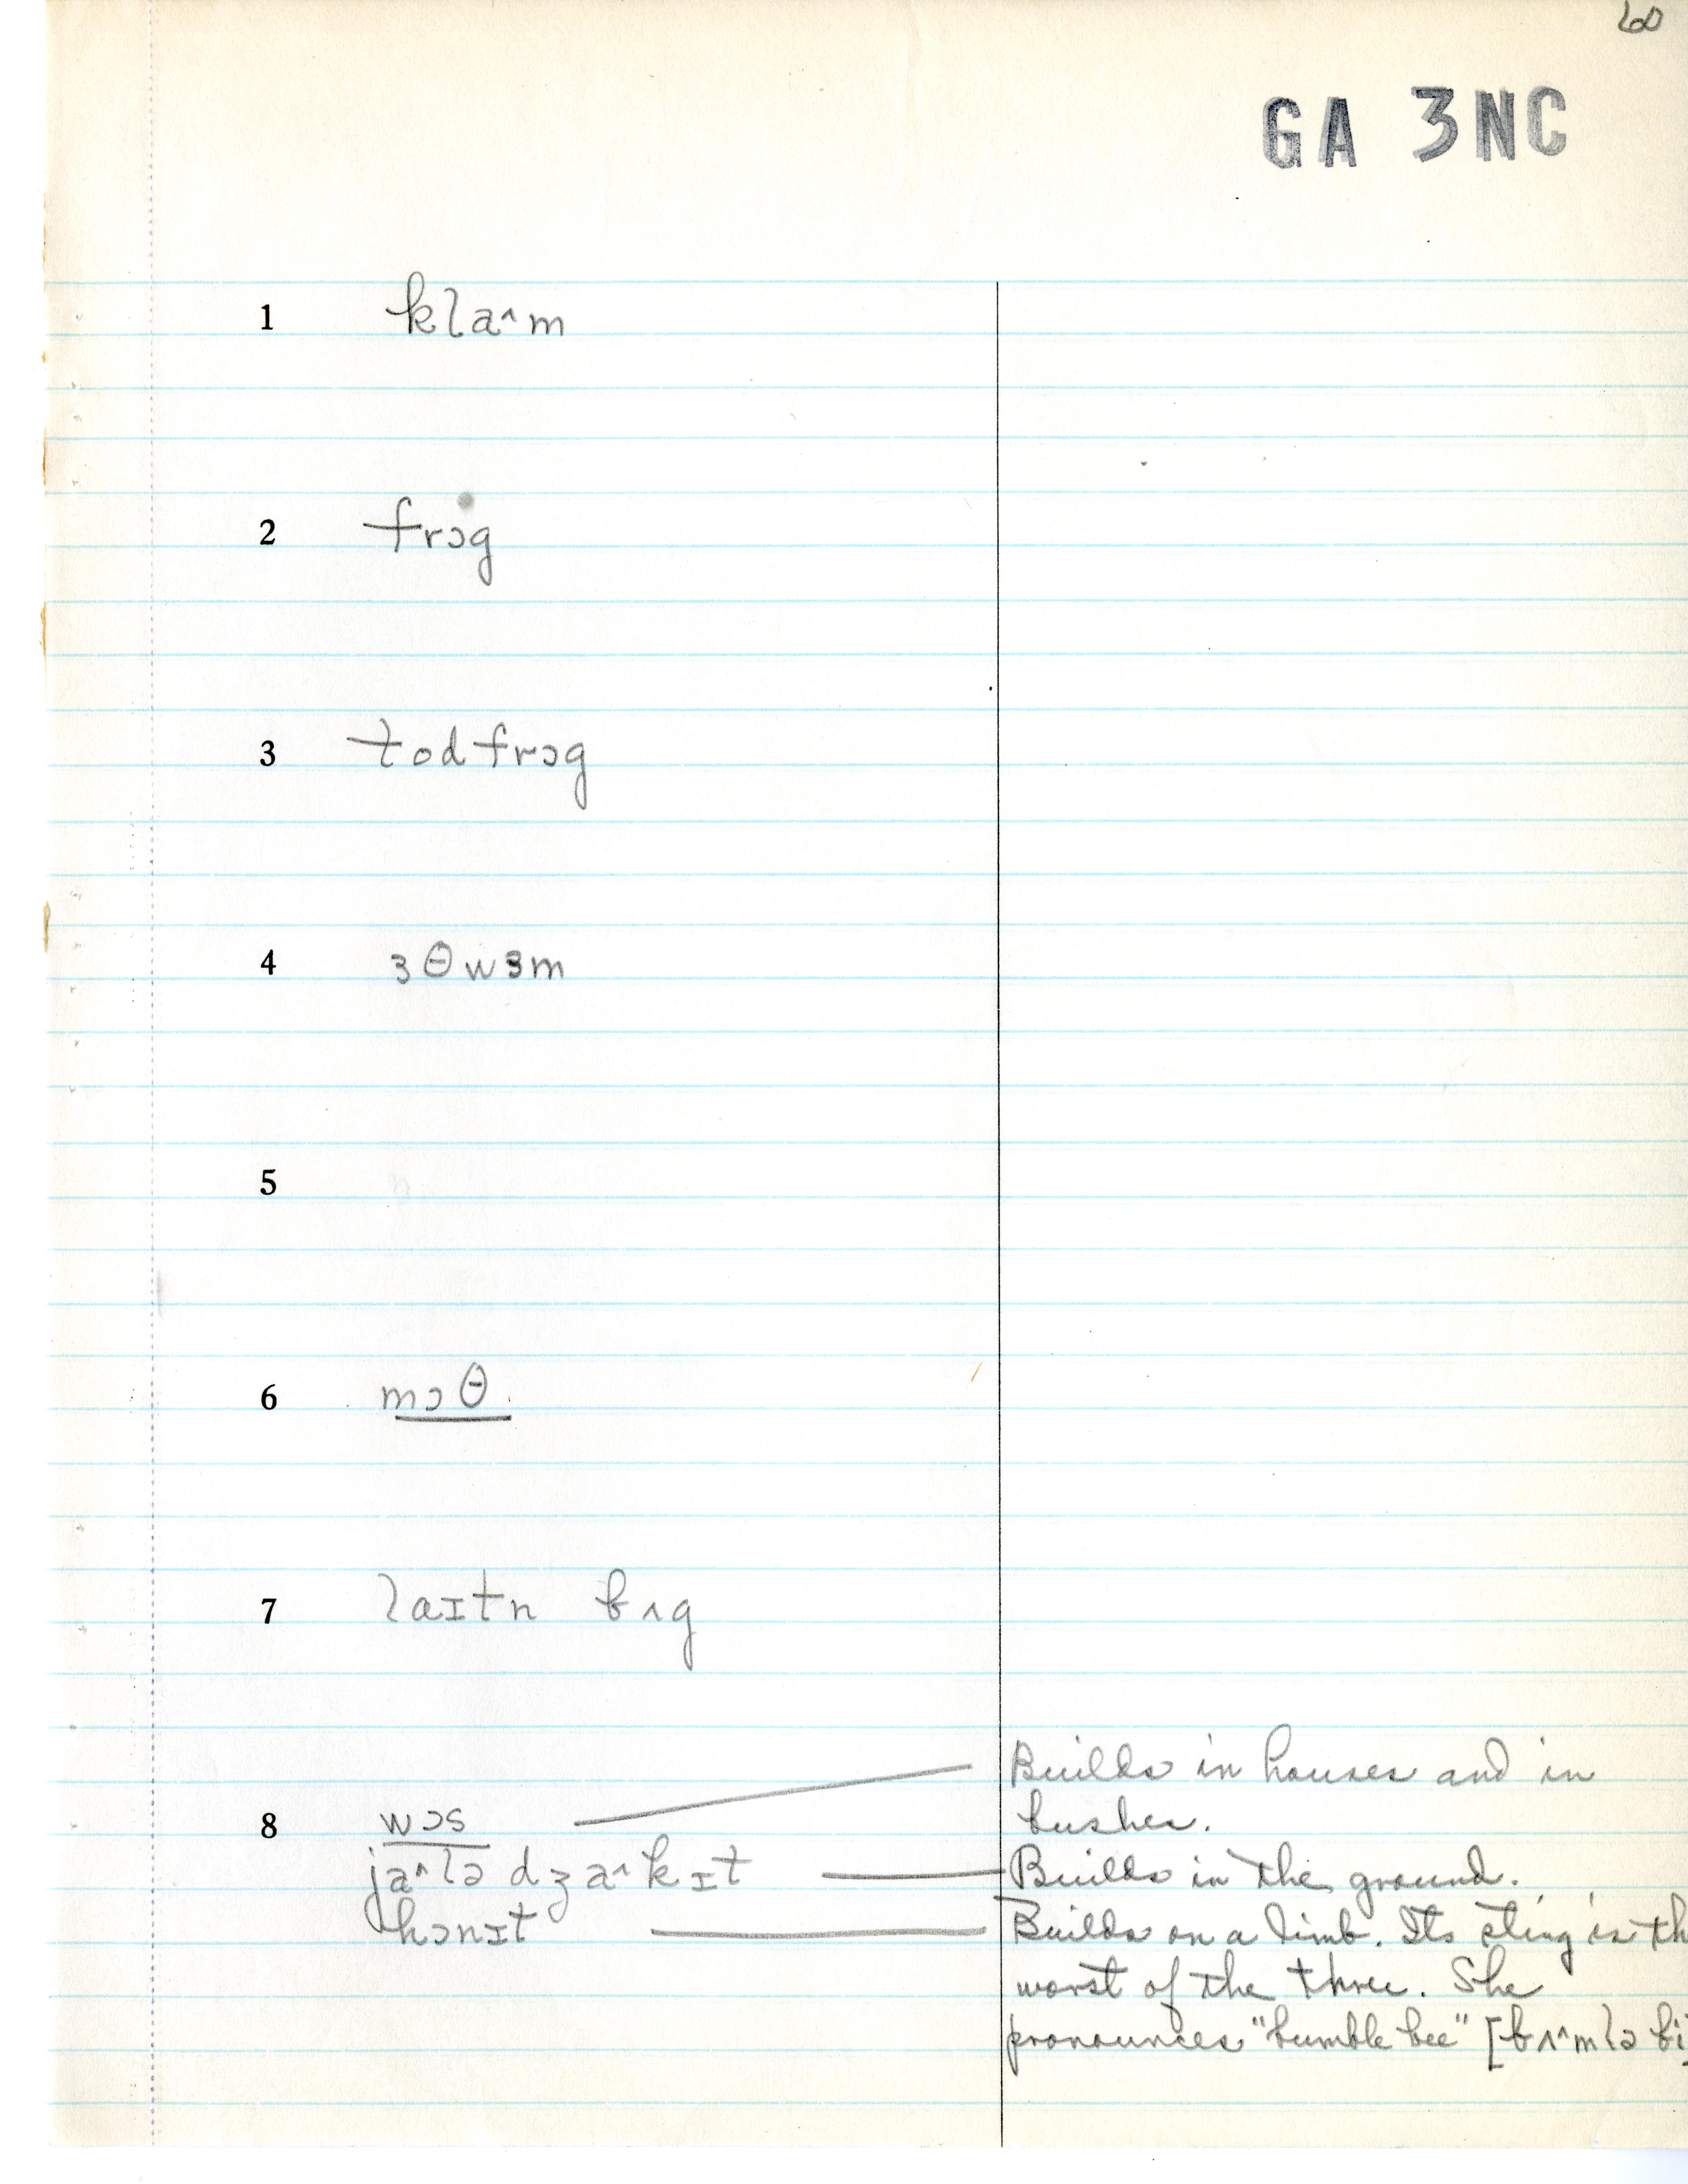 60
GA 3NC
1 kla^m
2 frɔg
3 todfrɔg
4 ɜθwɜm
5
6 mɔθ
7 laɪtn bʌg
Builds in houses and in
8 wɔs bushes.
ja^lə dʒa^kɪt Builds in the ground.
hɔnɪt Builds on a limb. Its sting is th
worst of the three. She
pronounces "bumble bee" [bʌ^mlə bi]